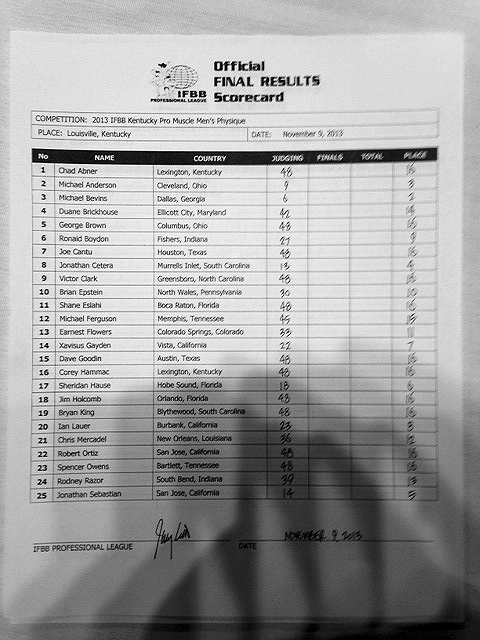 Official
FINAL RESULTS
Scorecard
IFBB
PROFESSIONAL LEAGUE
COMPETITION: 2013 IFBB Kentucky Pro Muscle Men's Physique
PLACE: Louisville, Kentucky DATE: November 9, 2013
No NAME COUNTRY JUDGING FINALS TOTAL PLACE
1 Chad Abner Lexington, Kentucky 48 16
2 Michael Anderson Cleveland, Ohio 9 3
3 Michael Bevins Dallas, Georgia 6 2
4 Duane Brickhouse Ellicott City, Maryland 42 14
5 George Brown Columbus, Ohio 48 16
6 Ronald Boydon Fishers, Indiana 27 9
7 Joe Cantu Houston, Texas 48 16
8 Jonathan Cetera Murrells Inlet, South Carolina 13 4
9 Victor Clark Greensboro, North Carolina 48 16
10 Brian Epstein North Wales, Pennsylvania 30 10
11 Shane Eslahi Boca Raton, Florida 48 16
12 Michael Ferguson Memphis, Tennessee 45 15
13 Earnest Flowers Colorado Springs, Colorado 33 11
14 Xavisus Gayden Vista, California 22 7
15 Dave Goodin Austin, Texas 48 16
16 Corey Hammac Lexington, Kentucky 48 16
17 Sheridan Hause Hobe Sound, Florida 18 6
18 Jim Holcomb Orlando, Florida 48 16
19 Bryan King Blythewood, South Carolina 48 16
20 Ian Lauer Burbank, California 23 8
21 Chris Mercadel New Orleans, Louisiana 36 12
22 Robert Ortiz San Jose, California 48 16
23 Spencer Owens Bartlett, Tennessee 48 16
24 Rodney Razor South Bend, Indiana 39 13
25 Jonathan Sebastian San Jose, California 14 5
NOVEMBER 9, 2013
IFBB PROFESSIONAL LEAGUE DATE